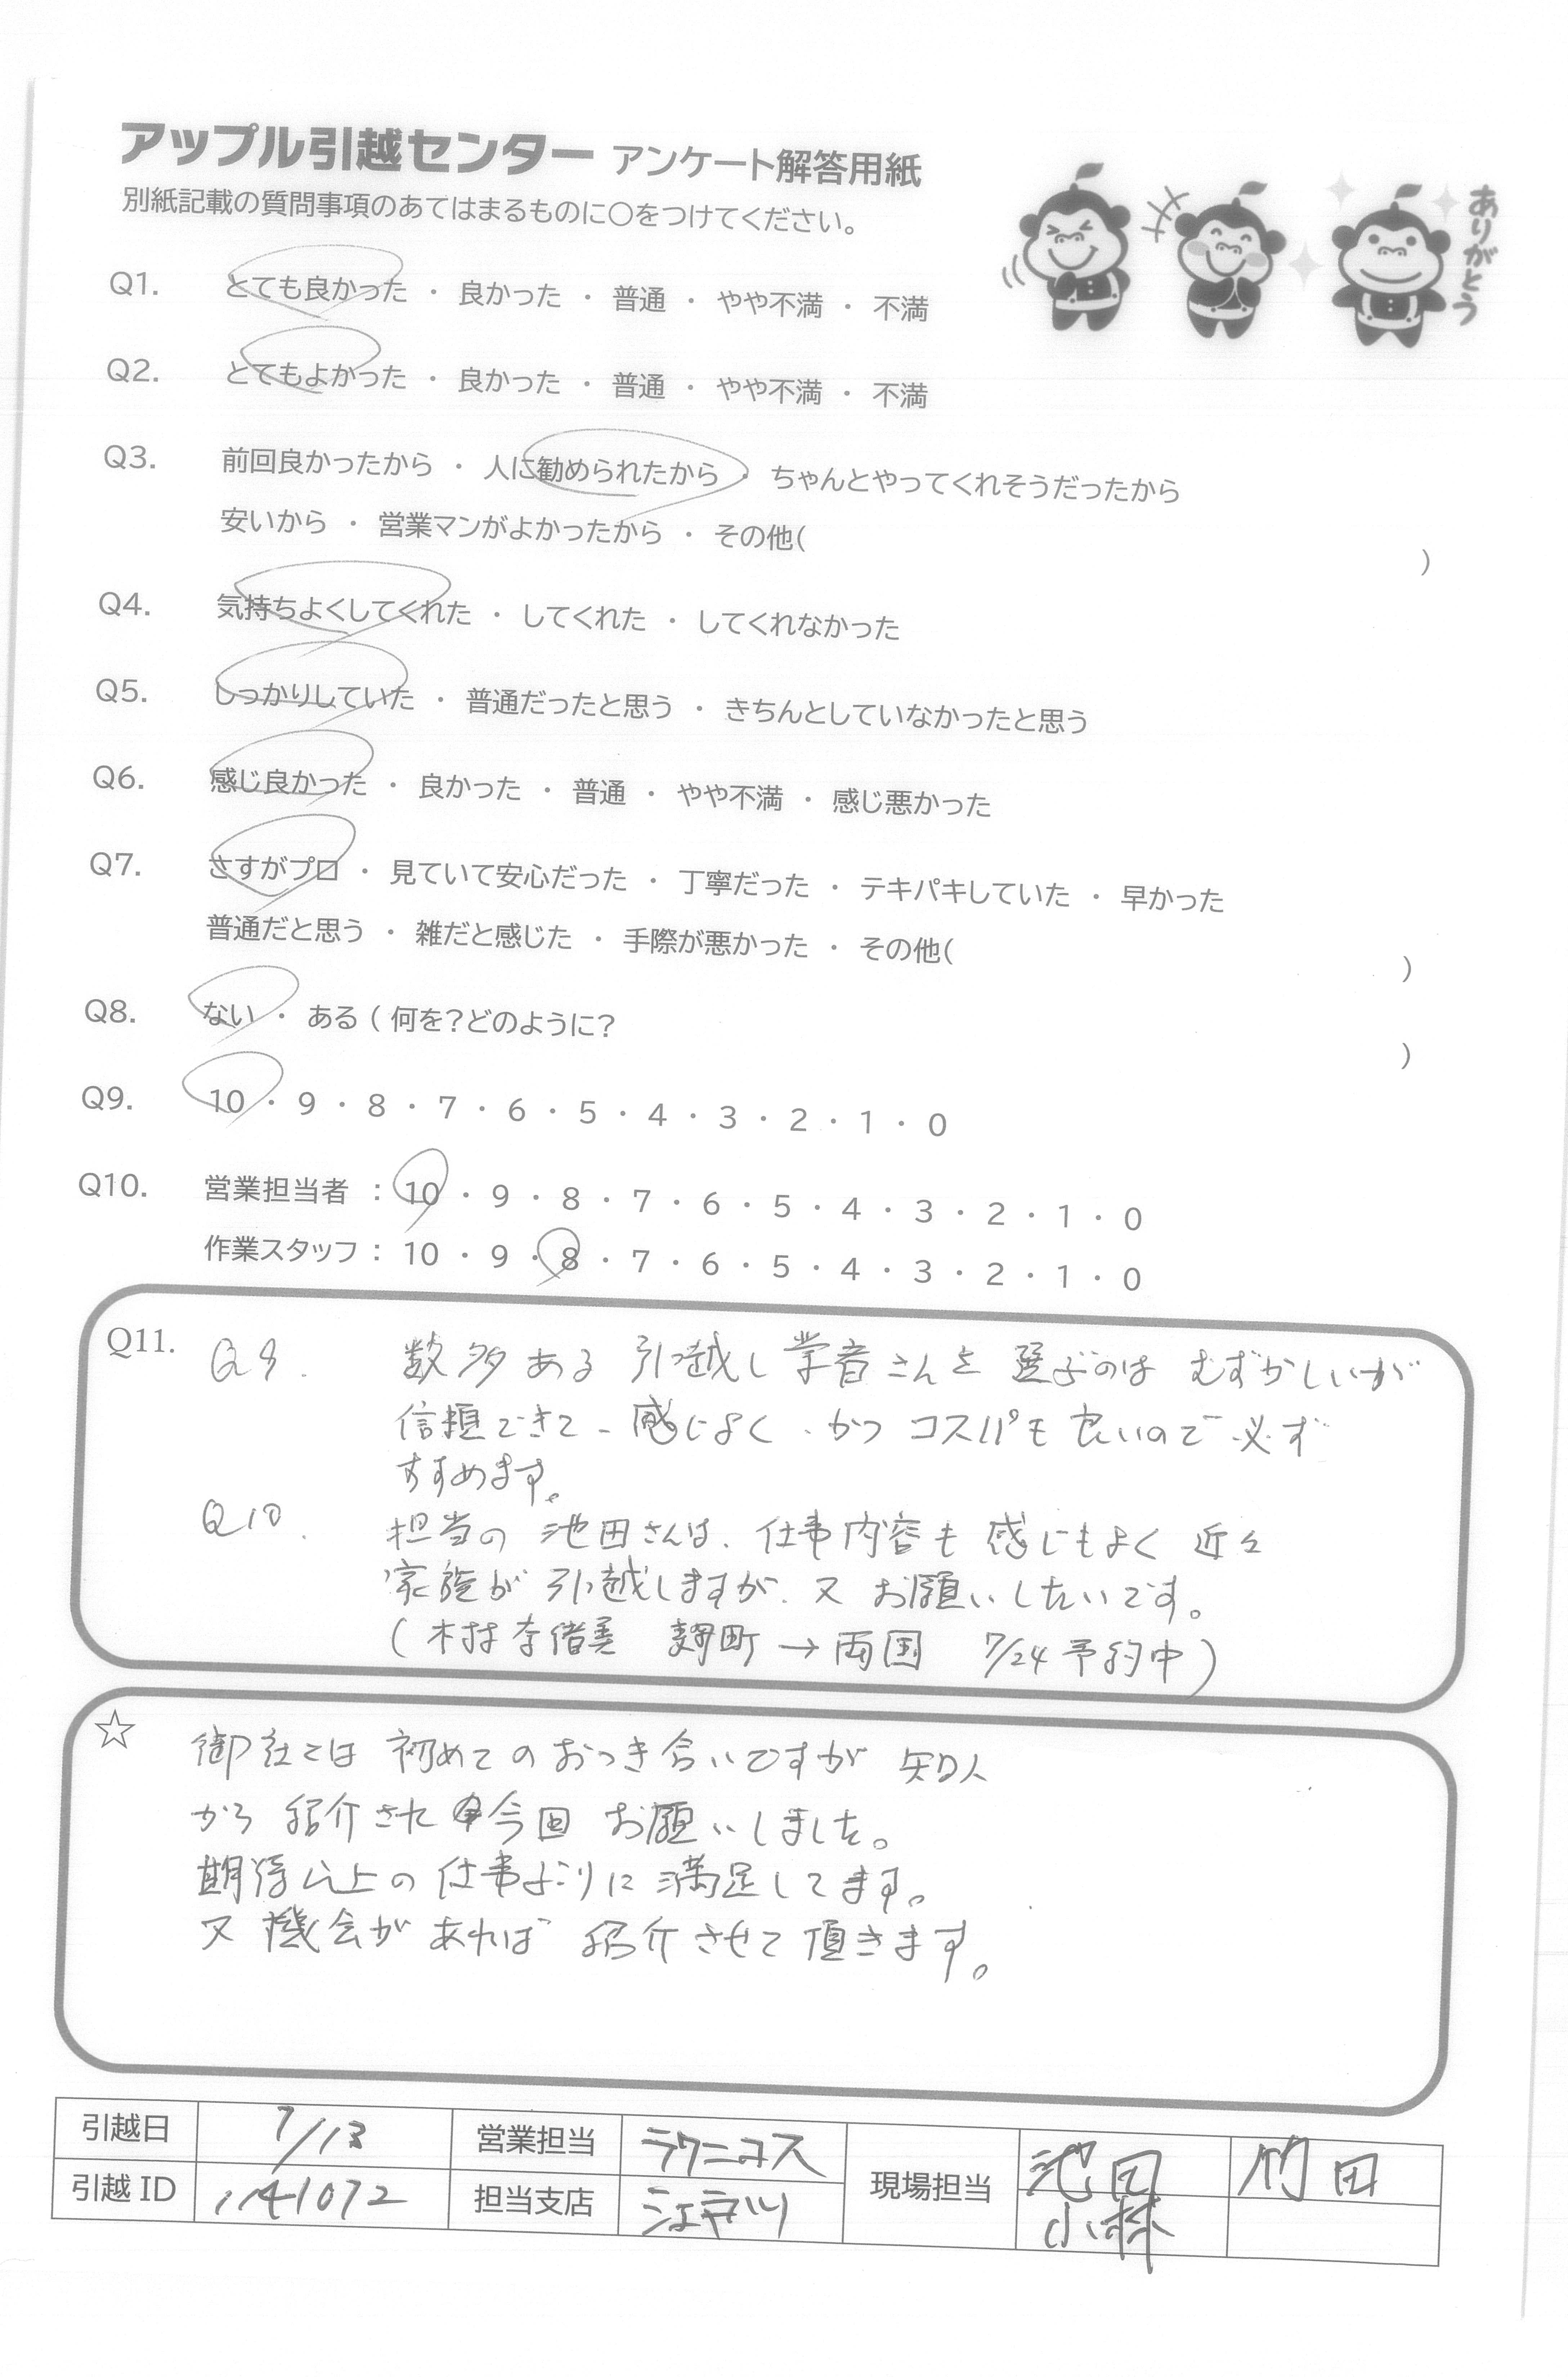 アップル引越センター アンケート解答用紙
別紙記載の質問事項のあてはまるものに〇をつけてください。
ありがとう
Q1. とても良かった ・ 良かった ・ 普通 ・ やや不満 ・ 不満
Q2. とてもよかった ・ 良かった ・ 普通 ・ やや不満 ・ 不満
Q3. 前回良かったから ・ 人に勧められたから ・ ちゃんとやってくれそうだったから
安いから ・ 営業マンがよかったから ・ その他( )
Q4. 気持ちよくしてくれた ・ してくれた ・ してくれなかった
Q5. しっかりしていた ・ 普通だったと思う ・ きちんとしていなかったと思う
Q6. 感じ良かった ・ 良かった ・ 普通 ・ やや不満 ・ 感じ悪かった
Q7. さすがプロ ・ 見ていて安心だった ・ 丁寧だった ・ テキパキしていた ・ 早かった
普通だと思う ・ 雑だと感じた ・ 手際が悪かった ・ その他( )
Q8. ない ・ ある ( 何を?どのように? )
Q9. 10 ・ 9 ・ 8 ・ 7 ・ 6 ・ 5 ・ 4 ・ 3 ・ 2 ・ 1 ・ 0
Q10. 営業担当者 : 10 ・ 9 ・ 8 ・ 7 ・ 6 ・ 5 ・ 4 ・ 3 ・ 2 ・ 1 ・ 0
作業スタッフ : 10 ・ 9 ・ 8 ・ 7 ・ 6 ・ 5 ・ 4 ・ 3 ・ 2 ・ 1 ・ 0
Q11. Q9. 数多ある 引越し業者さんを 選ぶのは むずかしいが
信頼できて、感じよく、かつ コスパも 良いので 必ず
すすめます。
Q10. 担当の 池田さんは、仕事内容も 感じもよく 近々
家族が 引越しますが、又 お願いしたいです。
(木村 麹町 → 両国 7/24 予約中)
☆ 御社とは 初めての おつき合いですが 知人
から 紹介され 今回 お願いしました。
期待以上の 仕事ぶりに 満足してます。
又 機会が あれば 紹介させて 頂きます。
引越日 7/13 営業担当 ラクニコス 現場担当 池田 竹田
引越 ID 1141072 担当支店 小林